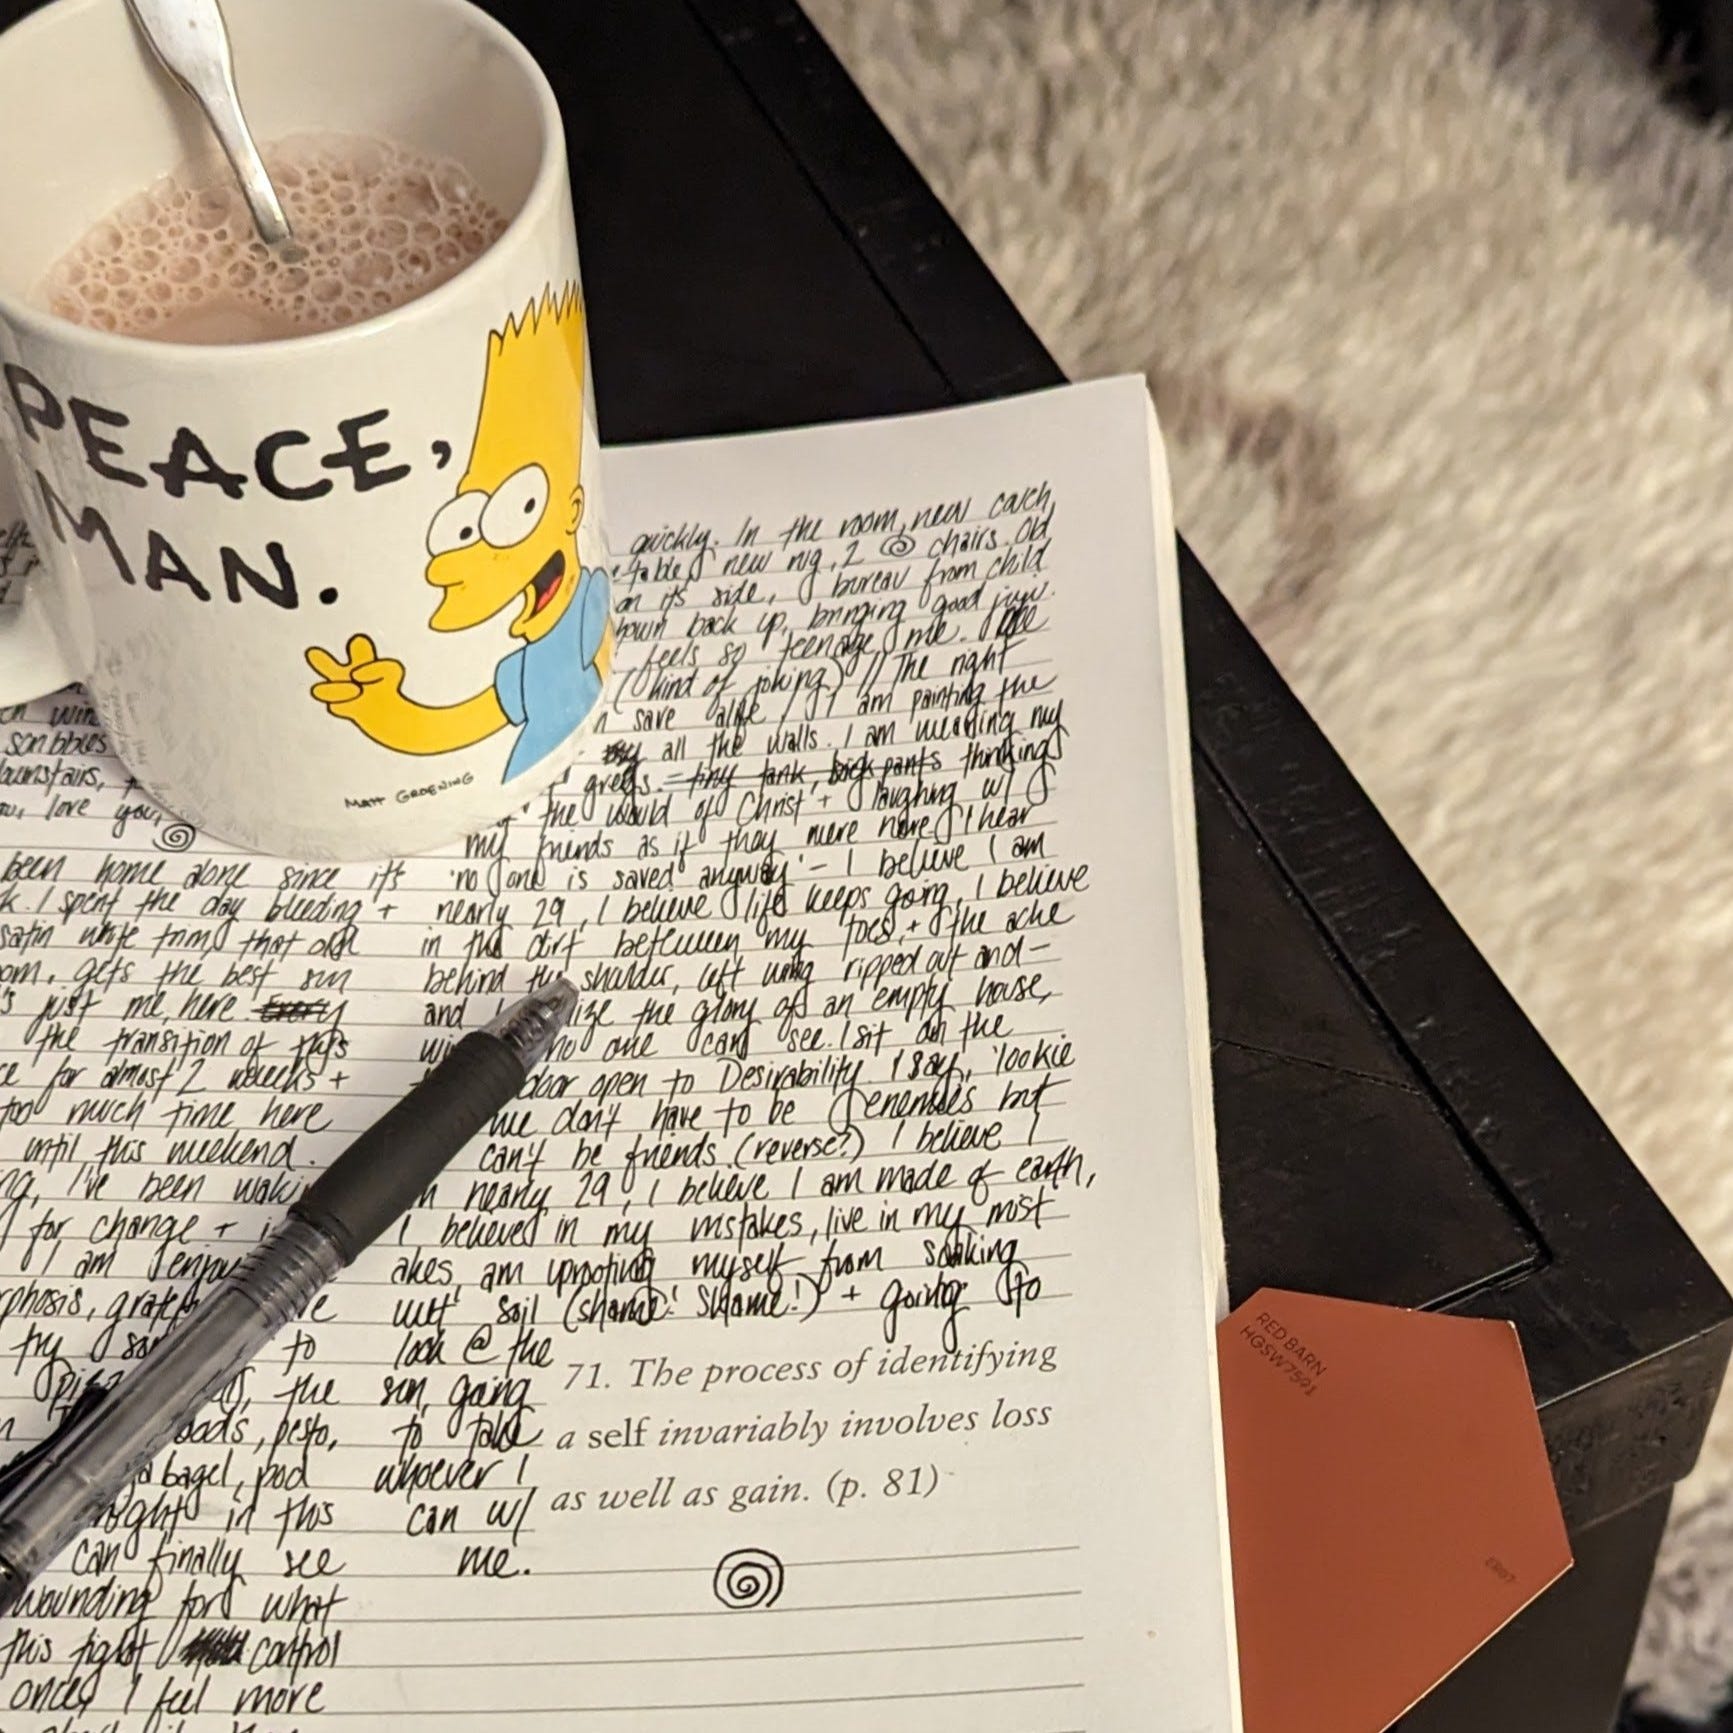 PEACE,
MAN.
MATT GROENING
en wine
scribbles
downstairs,
love you,
been home alone since it's
k. I spent the day bleeding +
satin white trim, that old
om, gets the best sun
's just me, here. Every
the transition of this
ce for almost 2 weeks +
too much time here
until this weekend.
ng, I've been waki
for change + i
I am enjoy
rphosis, gratef
try so to
the
oods, pesto,
a bagel, pod
in this
can finally see
wounding for what
this fight control
once, I feel more
quickly. In the room, new couch
table, new rug, 2 chairs. Old
on its side, bureau from child
back up, bringing good juju.
feels so teenage me.
(kind of joking) // The right
save a life, I am painting the
all the walls. I am wearing my
greys. = tiny tank, pants thinking
the would of Christ + laughing w/
my friends as if they were here. I hear
'no one is saved anyway' - I believe I am
nearly 29, I believe life keeps going, I believe
in the dirt between my toes, + the ache
behind the shoulder, left wing ripped out and-
and I lize the glory of an empty house,
no one can see. I sit on the
door open to Desirability. I say, 'lookie
we don't have to be enemies but
can't be friends. (reverse?) I believe I
m nearly 29, I believe I am made of earth,
I believed in my mistakes, live in my mist
akes, am uprooting myself from soaking
wet soil (shame! Shame!) + going to
look @ the
sun, going
to take
whoever I
can w/
me.
71. The process of identifying
a self invariably involves loss
as well as gain. (p. 81)
RED BARN
HGSW7591